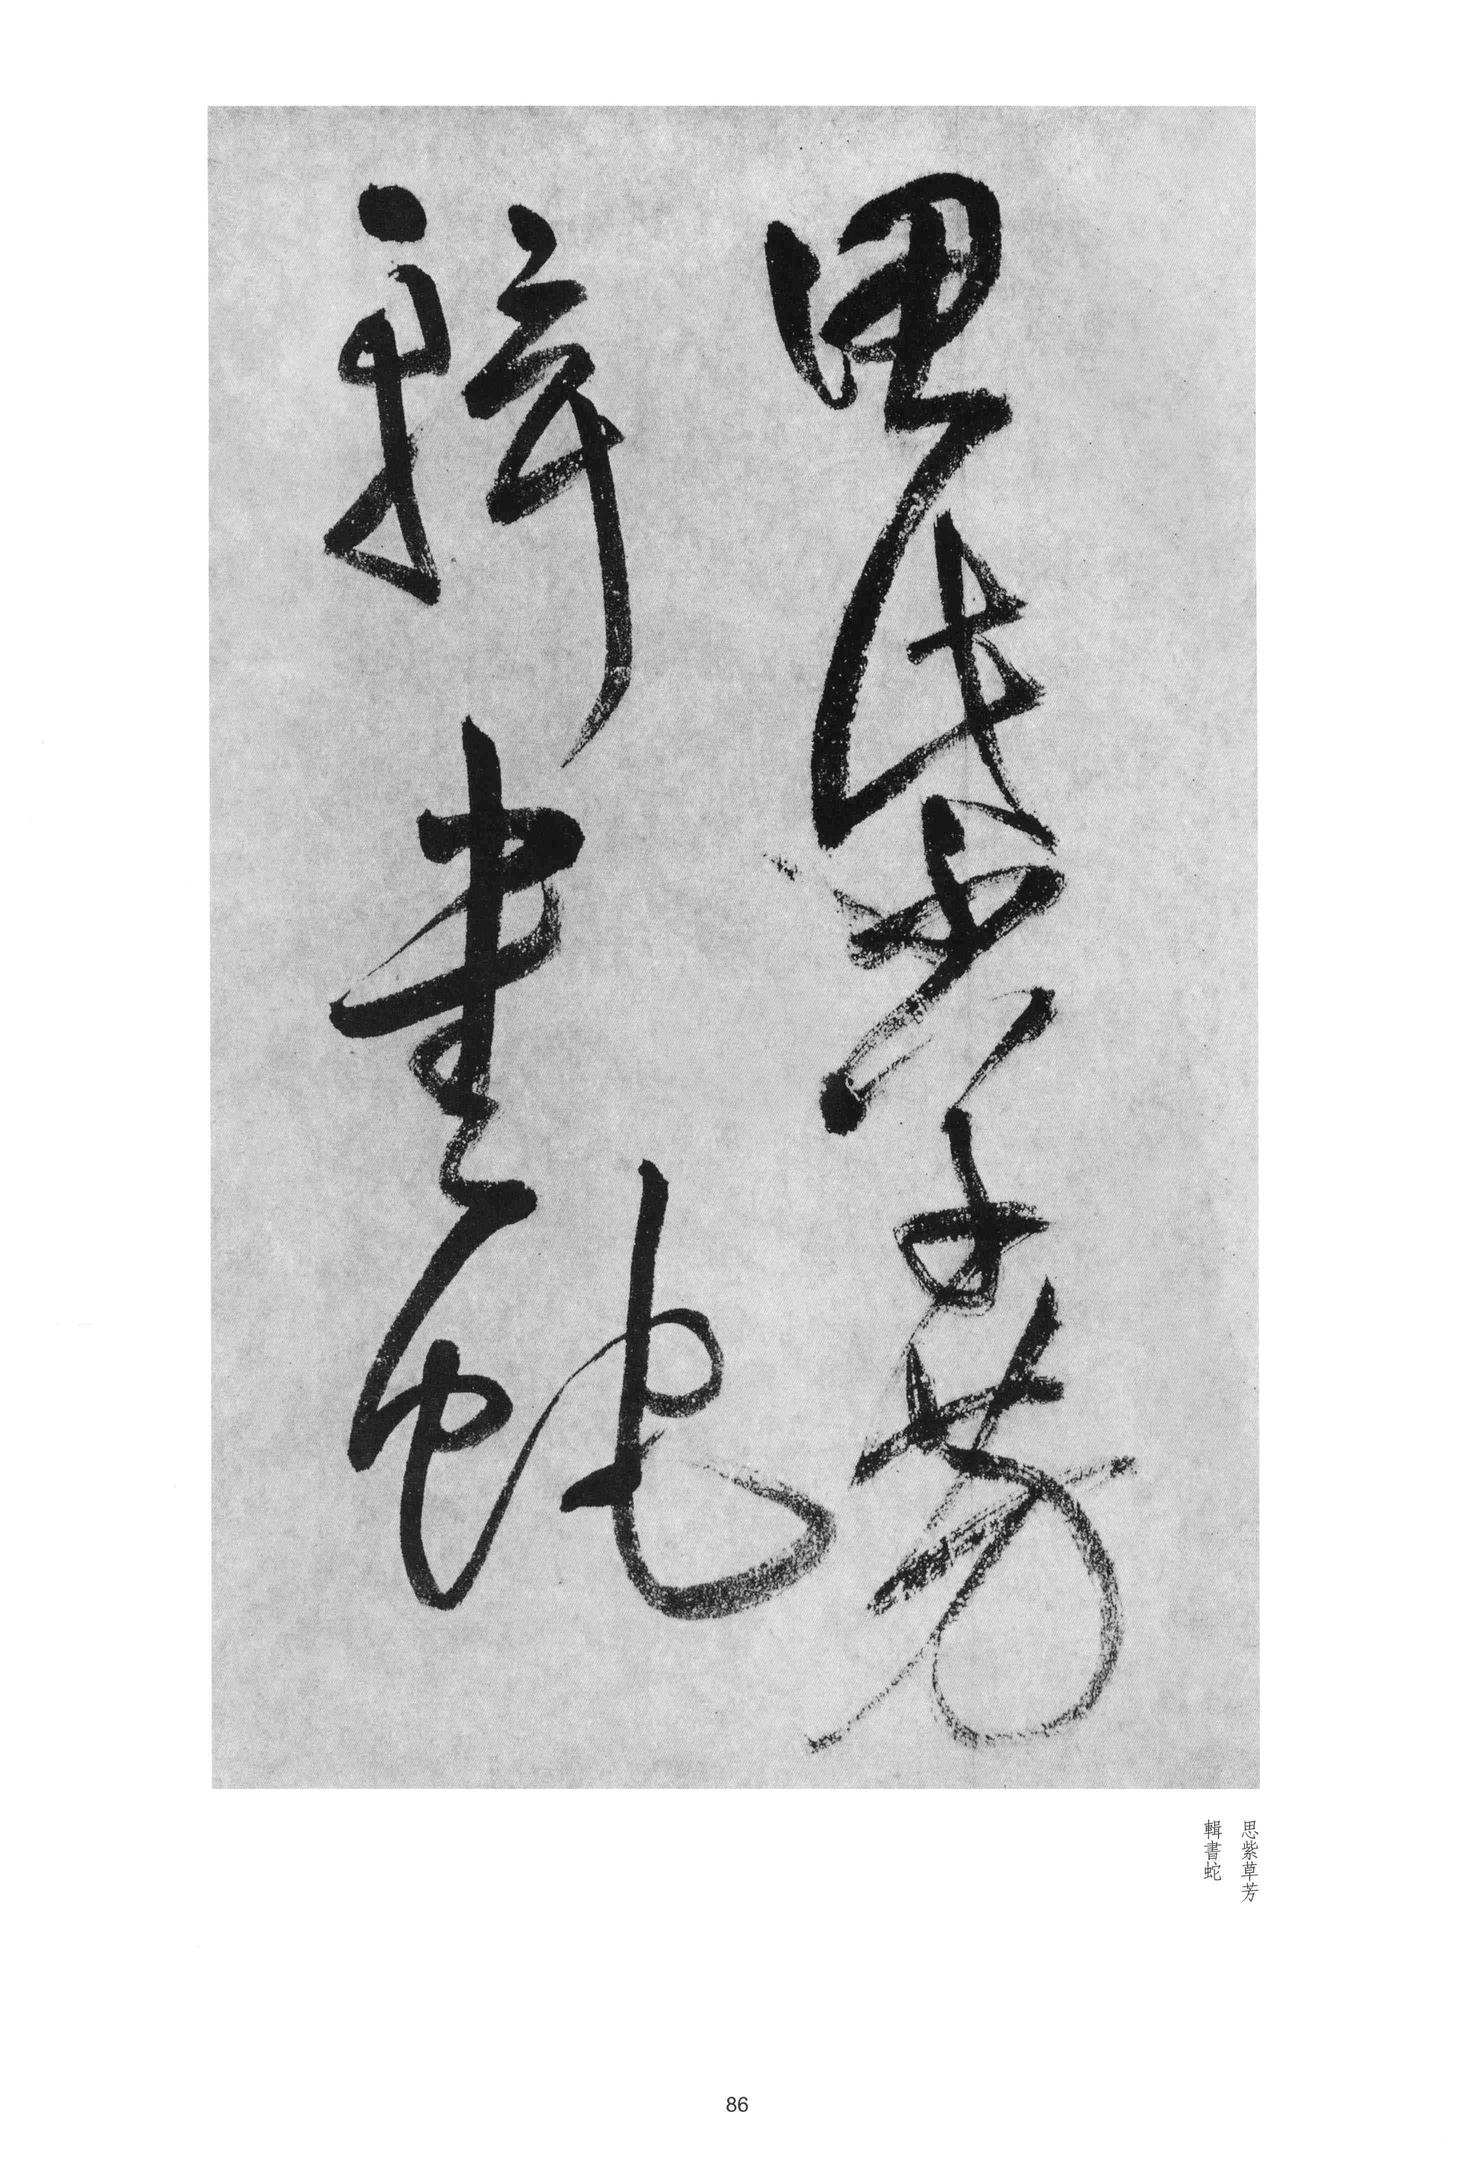 思紫草芳
輯書蛇
思紫草芳
輯書蛇
86